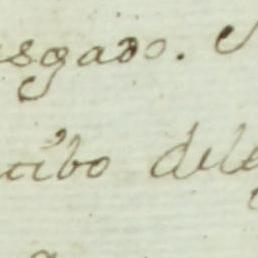 sgado.
cibo dele